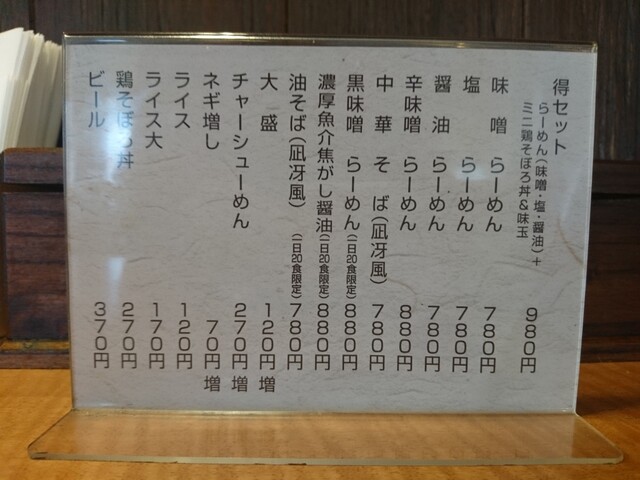 得セット
らーめん(味噌・塩・醤油)+
ミニ鶏そぼろ丼&味玉 980円
味噌 らーめん 780円
塩 らーめん 780円
醤油 らーめん 780円
辛味噌 らーめん 880円
中華そば(凪冴風) 780円
黒味噌 らーめん(一日20食限定) 880円
濃厚魚介焦がし醤油(一日20食限定) 880円
油そば(凪冴風) (一日20食限定) 780円
大盛 120円増
チャーシューめん 270円増
ネギ増し 70円増
ライス 120円
ライス大 170円
鶏そぼろ丼 270円
ビール 370円